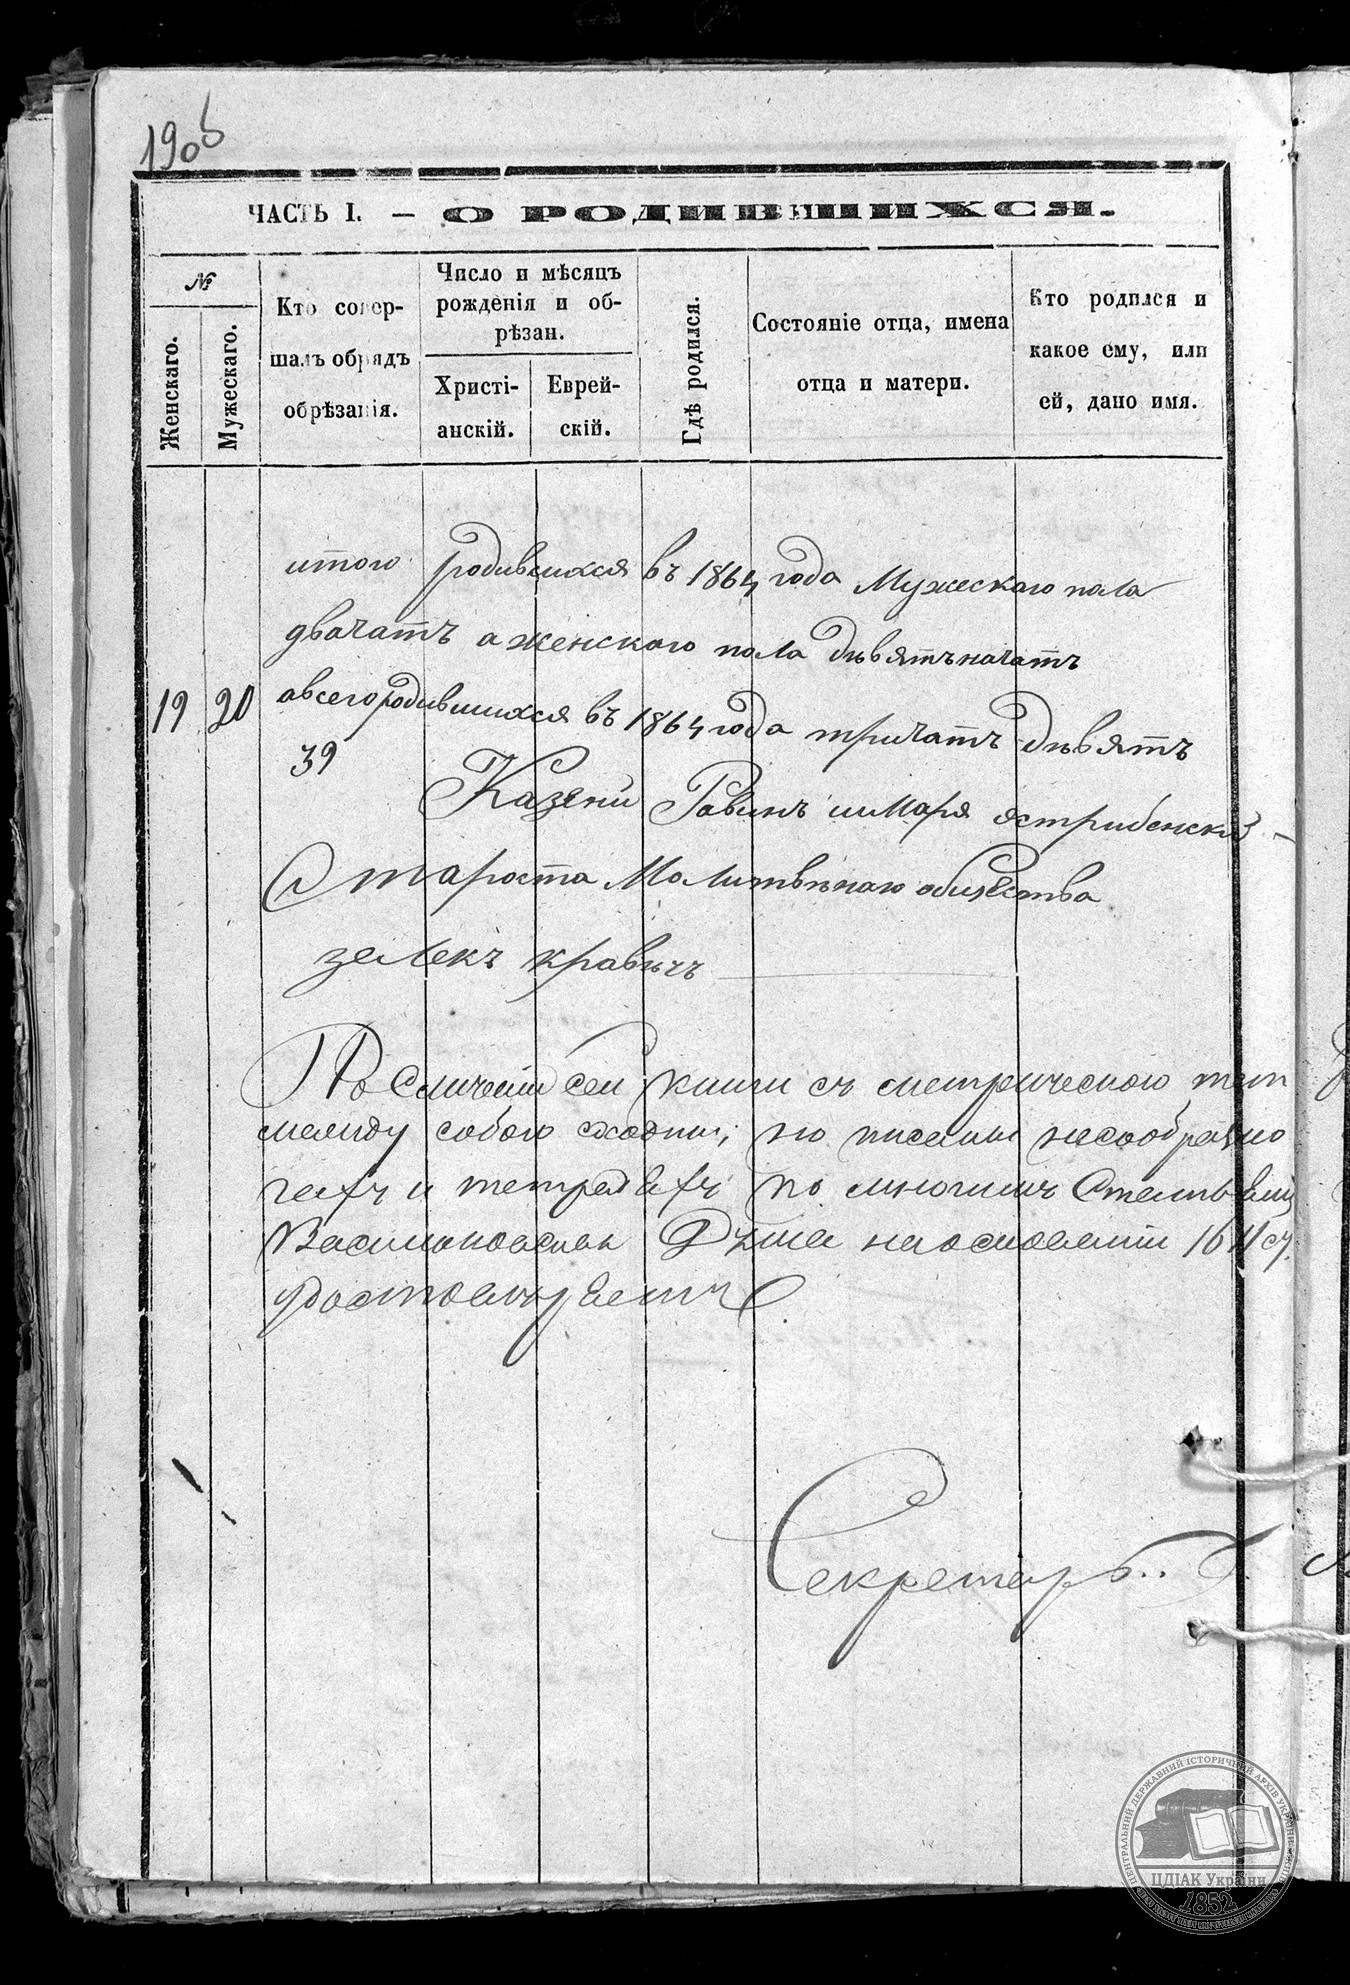 190 об
ЧАСТЬ I. — О РОДИВШИХСЯ.
№
Женскаго.
Мужескаго.
Кто совер-
шалъ обрядъ
обрѣзанія.
Число и мѣсяцъ
рожденія и об-
рѣзан.
Христі-
анскій.
Еврей-
скій.
Гдѣ родился.
Состояніе отца, имена
отца и матери.
Кто родился и
какое ему, или
ей, дано имя.
итого родившихся въ 1864 года Мужескаго пола
двачатъ а женскаго пола дѣвятъначатъ
19 20 авсегородившихся въ 1864 года тричатъ дѣвятъ
39
Казени Равинъ шмаря ястрибенский
Староста Молитвѣнаго общества
зелекъ кравѣчъ
По сличеніи сей книги съ метрическою тет
между собою сходны, но писаны несообразно
и тетрадехъ по многимъ Статьямъ
Васильковская Дума наоснованіи 1611 ст.
Секретарь
ЦЕНТРАЛЬНИЙ ДЕРЖАВНИЙ ІСТОРИЧНИЙ АРХІВ УКРАЇНИ
ЦДІАК України
1852